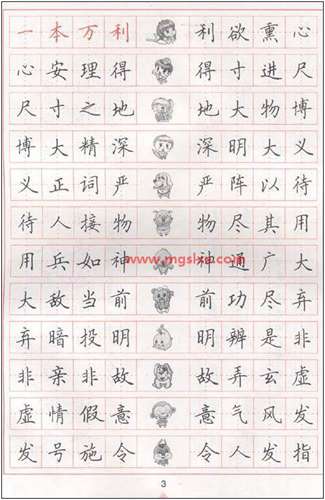 一本万利 利欲熏心
心安理得 得寸进尺
尺寸之地 地大物博
博大精深 深明大义
义正词严 严阵以待
待人接物 物尽其用
www.mgslxs.com
用兵如神 神通广大
大敌当前 前功尽弃
弃暗投明 明辨是非
非亲非故 故弄玄虚
虚情假意 意气风发
发号施令 令人发指
3